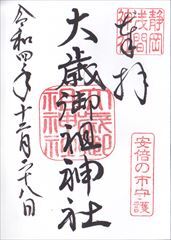 静岡
浅間
神社
奉拝
安倍の市守護
大歳御祖神社
令和四年十二月二十八日